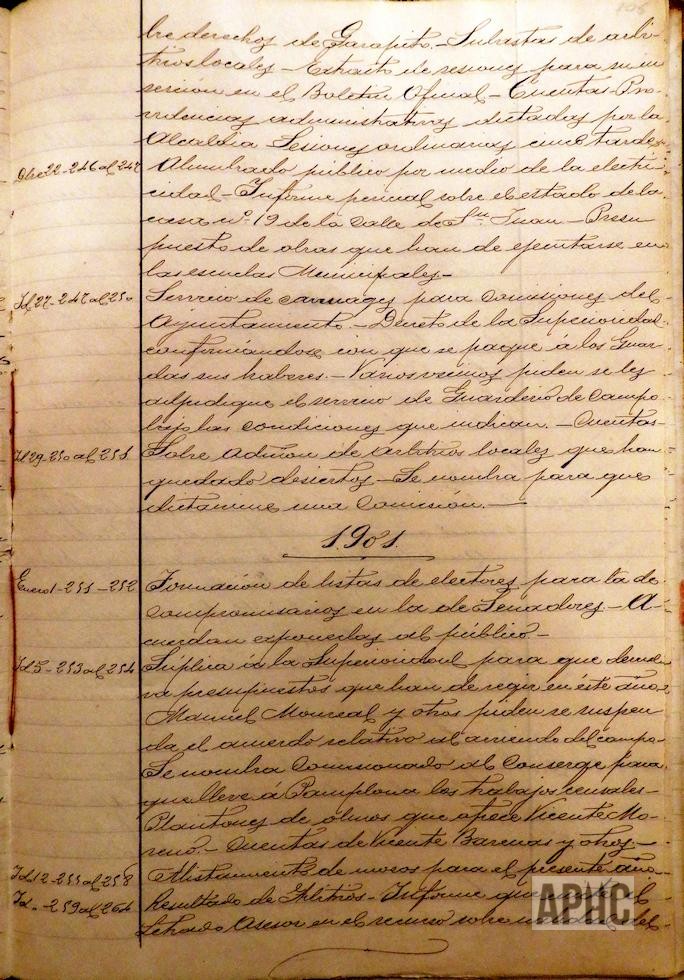 106
bre derechos de Garapito.- Subastas de arbi-
trios locales - Extracto de sesiones para su in
serción en el Boletin Oficial - Cuentas - Pro-
videncias administrativas dictadas por la
Alcaldia Sesiones ordinarias cinco tarde.
Dbre 22 - 246 al 247 Alumbrado público por medio de la electri-
cidad - Informe pericial sobre el estado de la
casa nº 19 de la Calle de Sn. Juan - Presu
puesto de obras que han de ejecutarse en
las escuelas Municipales -
Id 27 - 247 al 250 Servicio de carruages para Comisiones del
Ayuntamiento. - Decreto de la Superioridad
conformándose con que se pague á los Guar
das sus haberes. - Varios vecinos piden se les
adjudique el servicio de Guarderio de Campo
bajo las condiciones que indican. - Cuentas -
Id 29 - 250 al 251 Sobre Admon de Arbitrios locales que han
quedado desiertos - Se nombra para que
dictamine una Comisión. -
1901.
Enero 1 - 251 - 252 Formación de listas de electores para la de
Compromisarios en la de Senadores - A-
cuerdan exponerlas al público -
Id 5 - 253 al 254 Suplica á la Superioridad para que devuel
va presupuestos que han de regir en éste año.
Manuel Monreal y otros piden se suspen
da el acuerdo relativo al arriendo del campo -
Se nombra Comisionado al Conserge para
que lleve á Pamplona los trabajos censales -
Plantones de olmos que ofrece Vicente Mo-
reno. - Cuentas de Vicente Barenas y otros. -
Id 12 - 255 al 258 Alistamiento de mozos para el presente año -
Id. - 259 al 264 Resultado de Filitros - Informe que
Letrado Asesor en el recurso sobre del
APHC